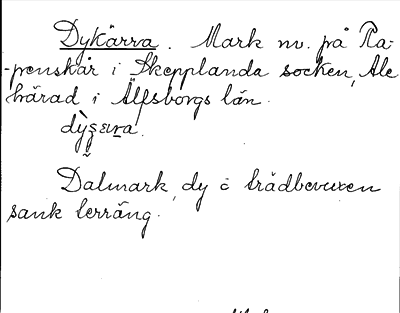 Dykärra. Mark nv. på Ra-
-penskår i Skepplanda socken, Ale
härad i Älfsborgs län.
Dalmark, dy o trädbevuxen
sank terräng.